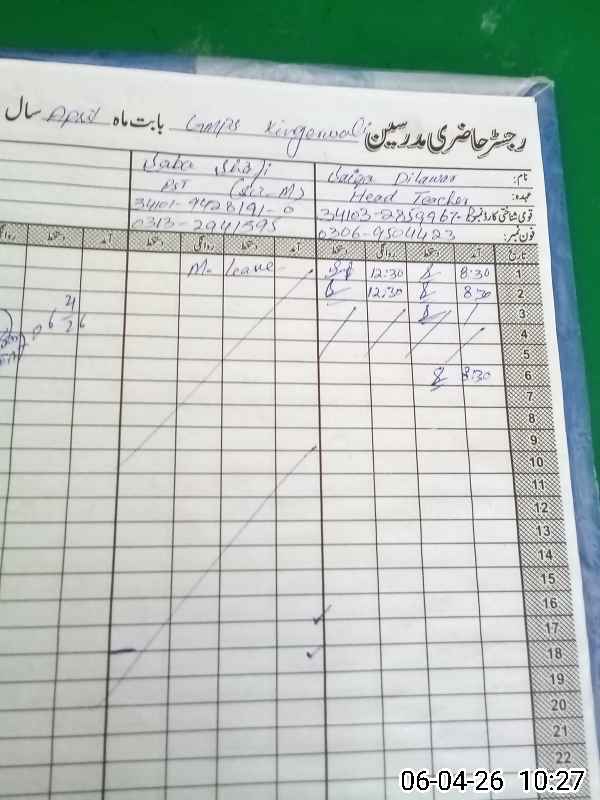 رجسٹر حاضری مدرسین GMPS Kingerwali بابت ماہ April سال
نام: Saiqa Dilawar Saba Shafi
عہدہ: Head Teacher PST
قومی شناختی کارڈ نمبر 34101-9428191-0
فون نمبر: 0306-9504423 0313-2941595
تاریخ آمد دستخط روانگی دستخط آمد دستخط روانگی دستخط آمد دستخط روانگی
1 8:30 12:30 M. Leave
2 8:30 12:30
3
4
5
6 8:30
7
8
9
10
11
12
13
14
15
16
17
18
19
20
21
22
06-04-26 10:27